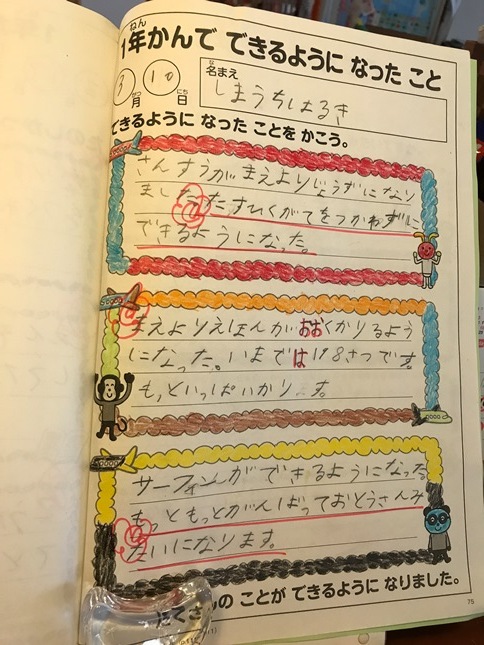 1年かんで できるように なった こと
ねん
3月10日
がつ にち
名まえ
な
しまうちはるき
できるように なった ことを かこう。
さんすうがまえよりじょうずになり
ました。たすひくがてをつかわずに
できるようになった。
まえよりえほんがおおくかりるよう
になった。いまでは198さつです。
もっといっぱいかります。
サーフィンができるようになった。
もっともっとがんばっておとうさんみ
たいになります。
の ことが できるように なりました。
75